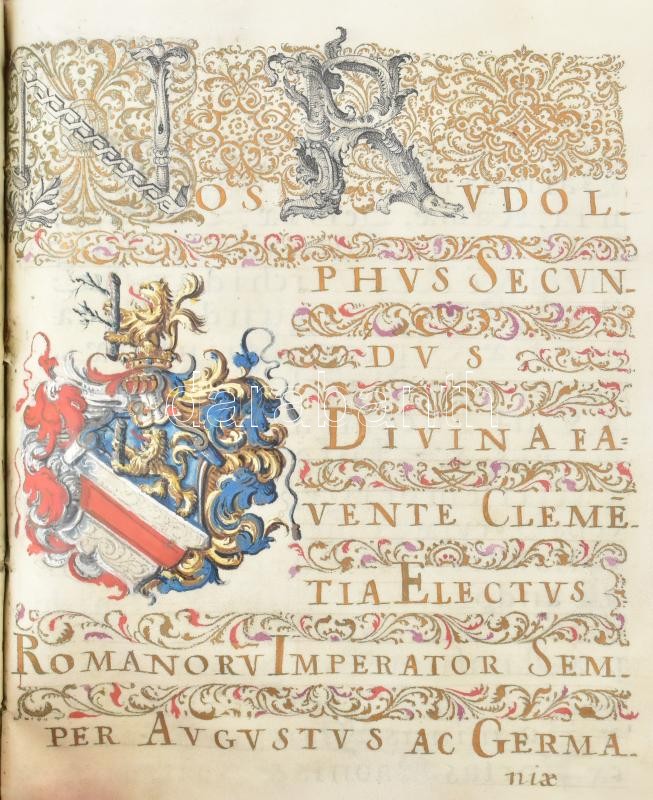 NOS RVDOL-
PHVS SECVN-
DVS
DIVINA FA=
VENTE CLEMĒ-
TIA ELECTVS
ROMANORV̄ IMPERATOR SEM-
PER AVGVSTVS AC GERMA-
niæ
darabanth